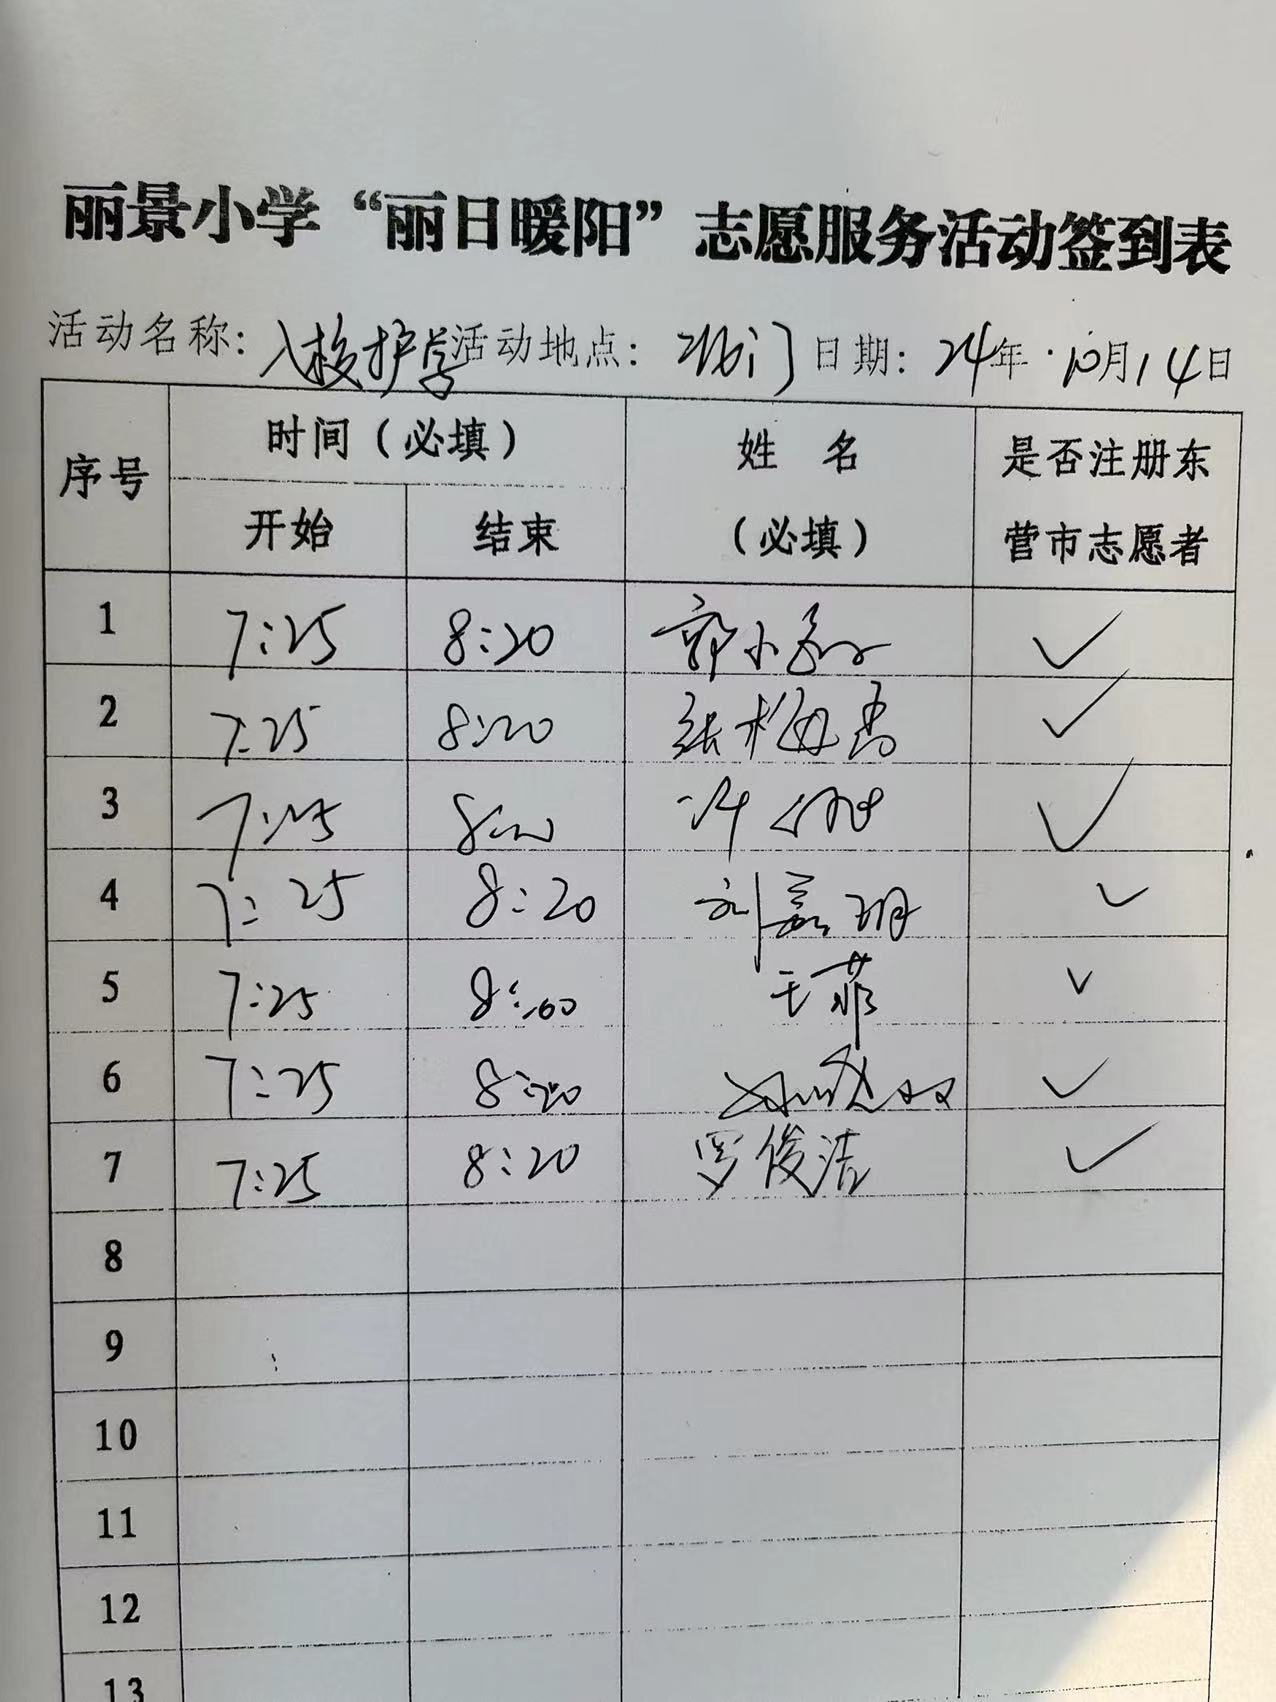 丽景小学“丽日暖阳”志愿服务活动签到表
活动名称：入校护学 活动地点： 日期：24年10月14日
序号 时间（必填） 姓 名（必填） 是否注册东营市志愿者
开始 结束
1 7:25 8:20 郭小 ✓
2 7:25 8:20 张梅香 ✓
3 7:25 8:20 ✓
4 7:25 8:20 刘嘉玥 ✓
5 7:25 8:00 王菲 ✓
6 7:25 8:20 ✓
7 7:25 8:20 罗俊洁 ✓
8
9
10
11
12
13